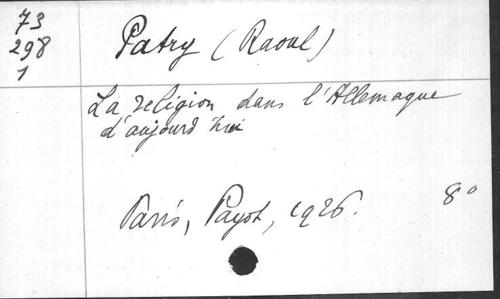 73
298
1
Patry (Raoul)
La religion dans l'Allemagne
d'aujourd'hui
Paris, Payot, 1926. 8°